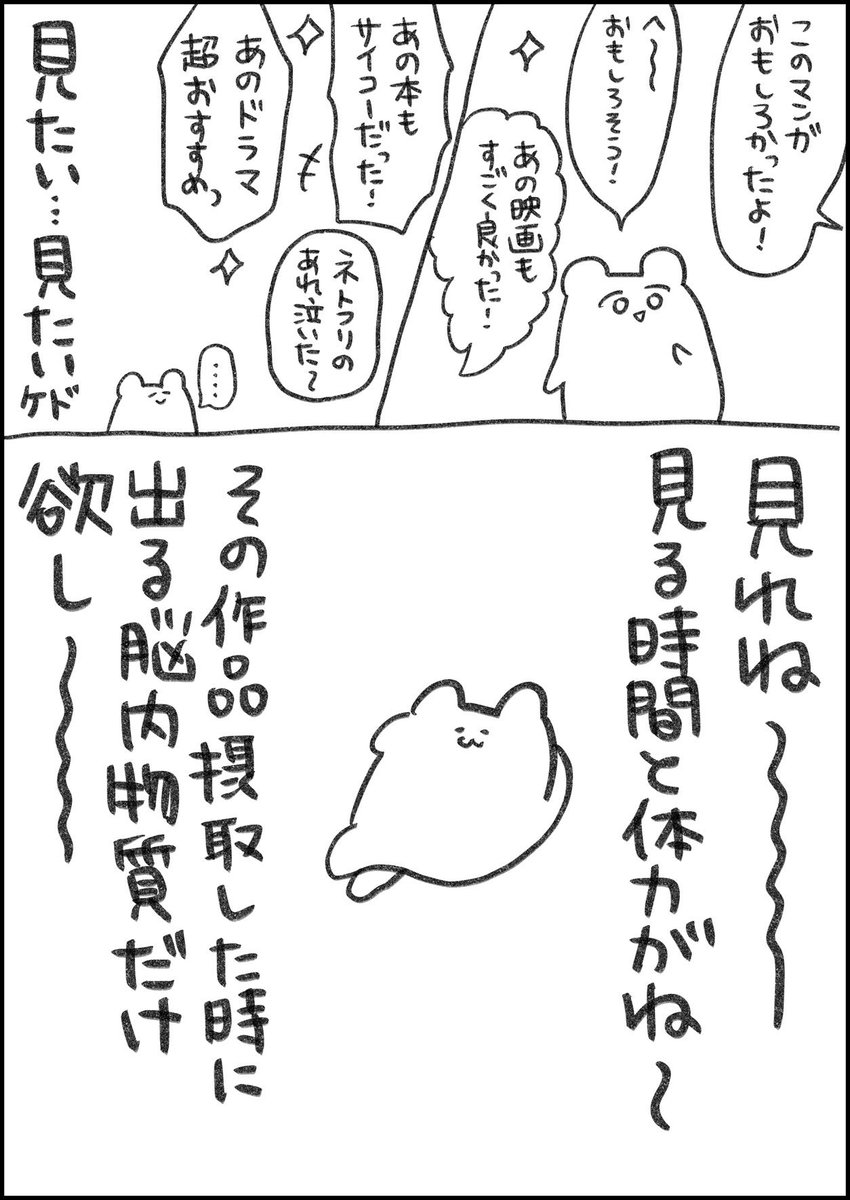 このマンガ
おもしろかったよ!
へ〜〜
おもしろそう!
あの映画も
すごく良かった!
あの本も
サイコーだった!
ネトフリの
あれ、泣いた〜
あのドラマ
超おすすめっ
・・・・
見たい…見たいケド
見れね〜〜〜
見る時間と体力がね〜
その作品摂取した時に
出る脳内物質だけ
欲し〜〜〜